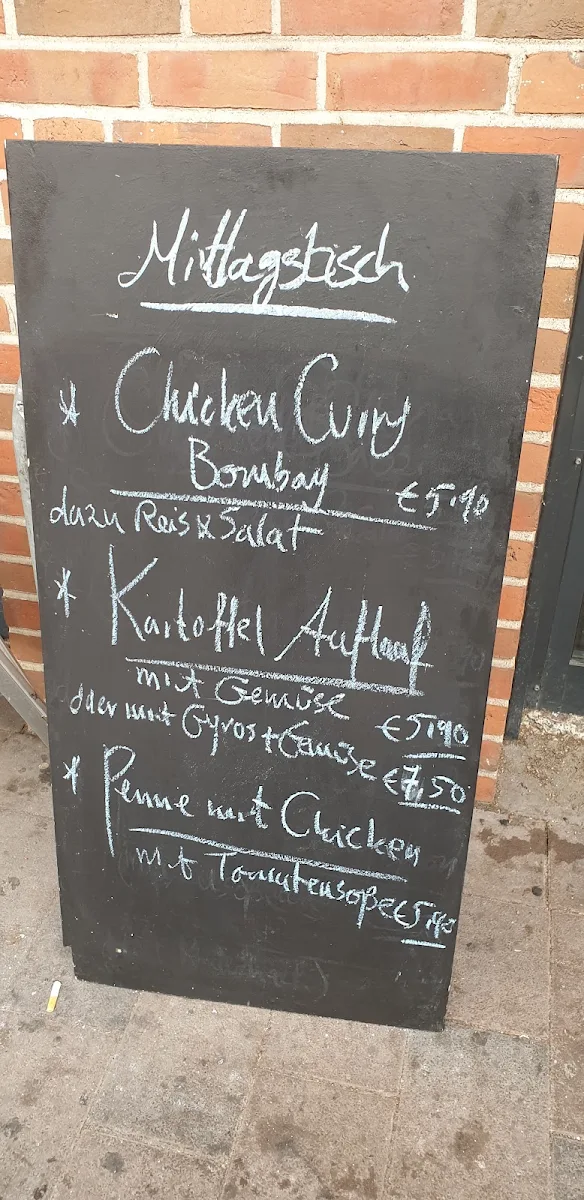 Mittagstisch
* Chicken Curry
Bombay €5.90
dazu Reis & Salat
* Kartoffel Auflauf
mit Gemüse €5.90
oder mit Gyros + Gemüse €7,50
* Penne mit Chicken
mit Tomatensoße €5,90